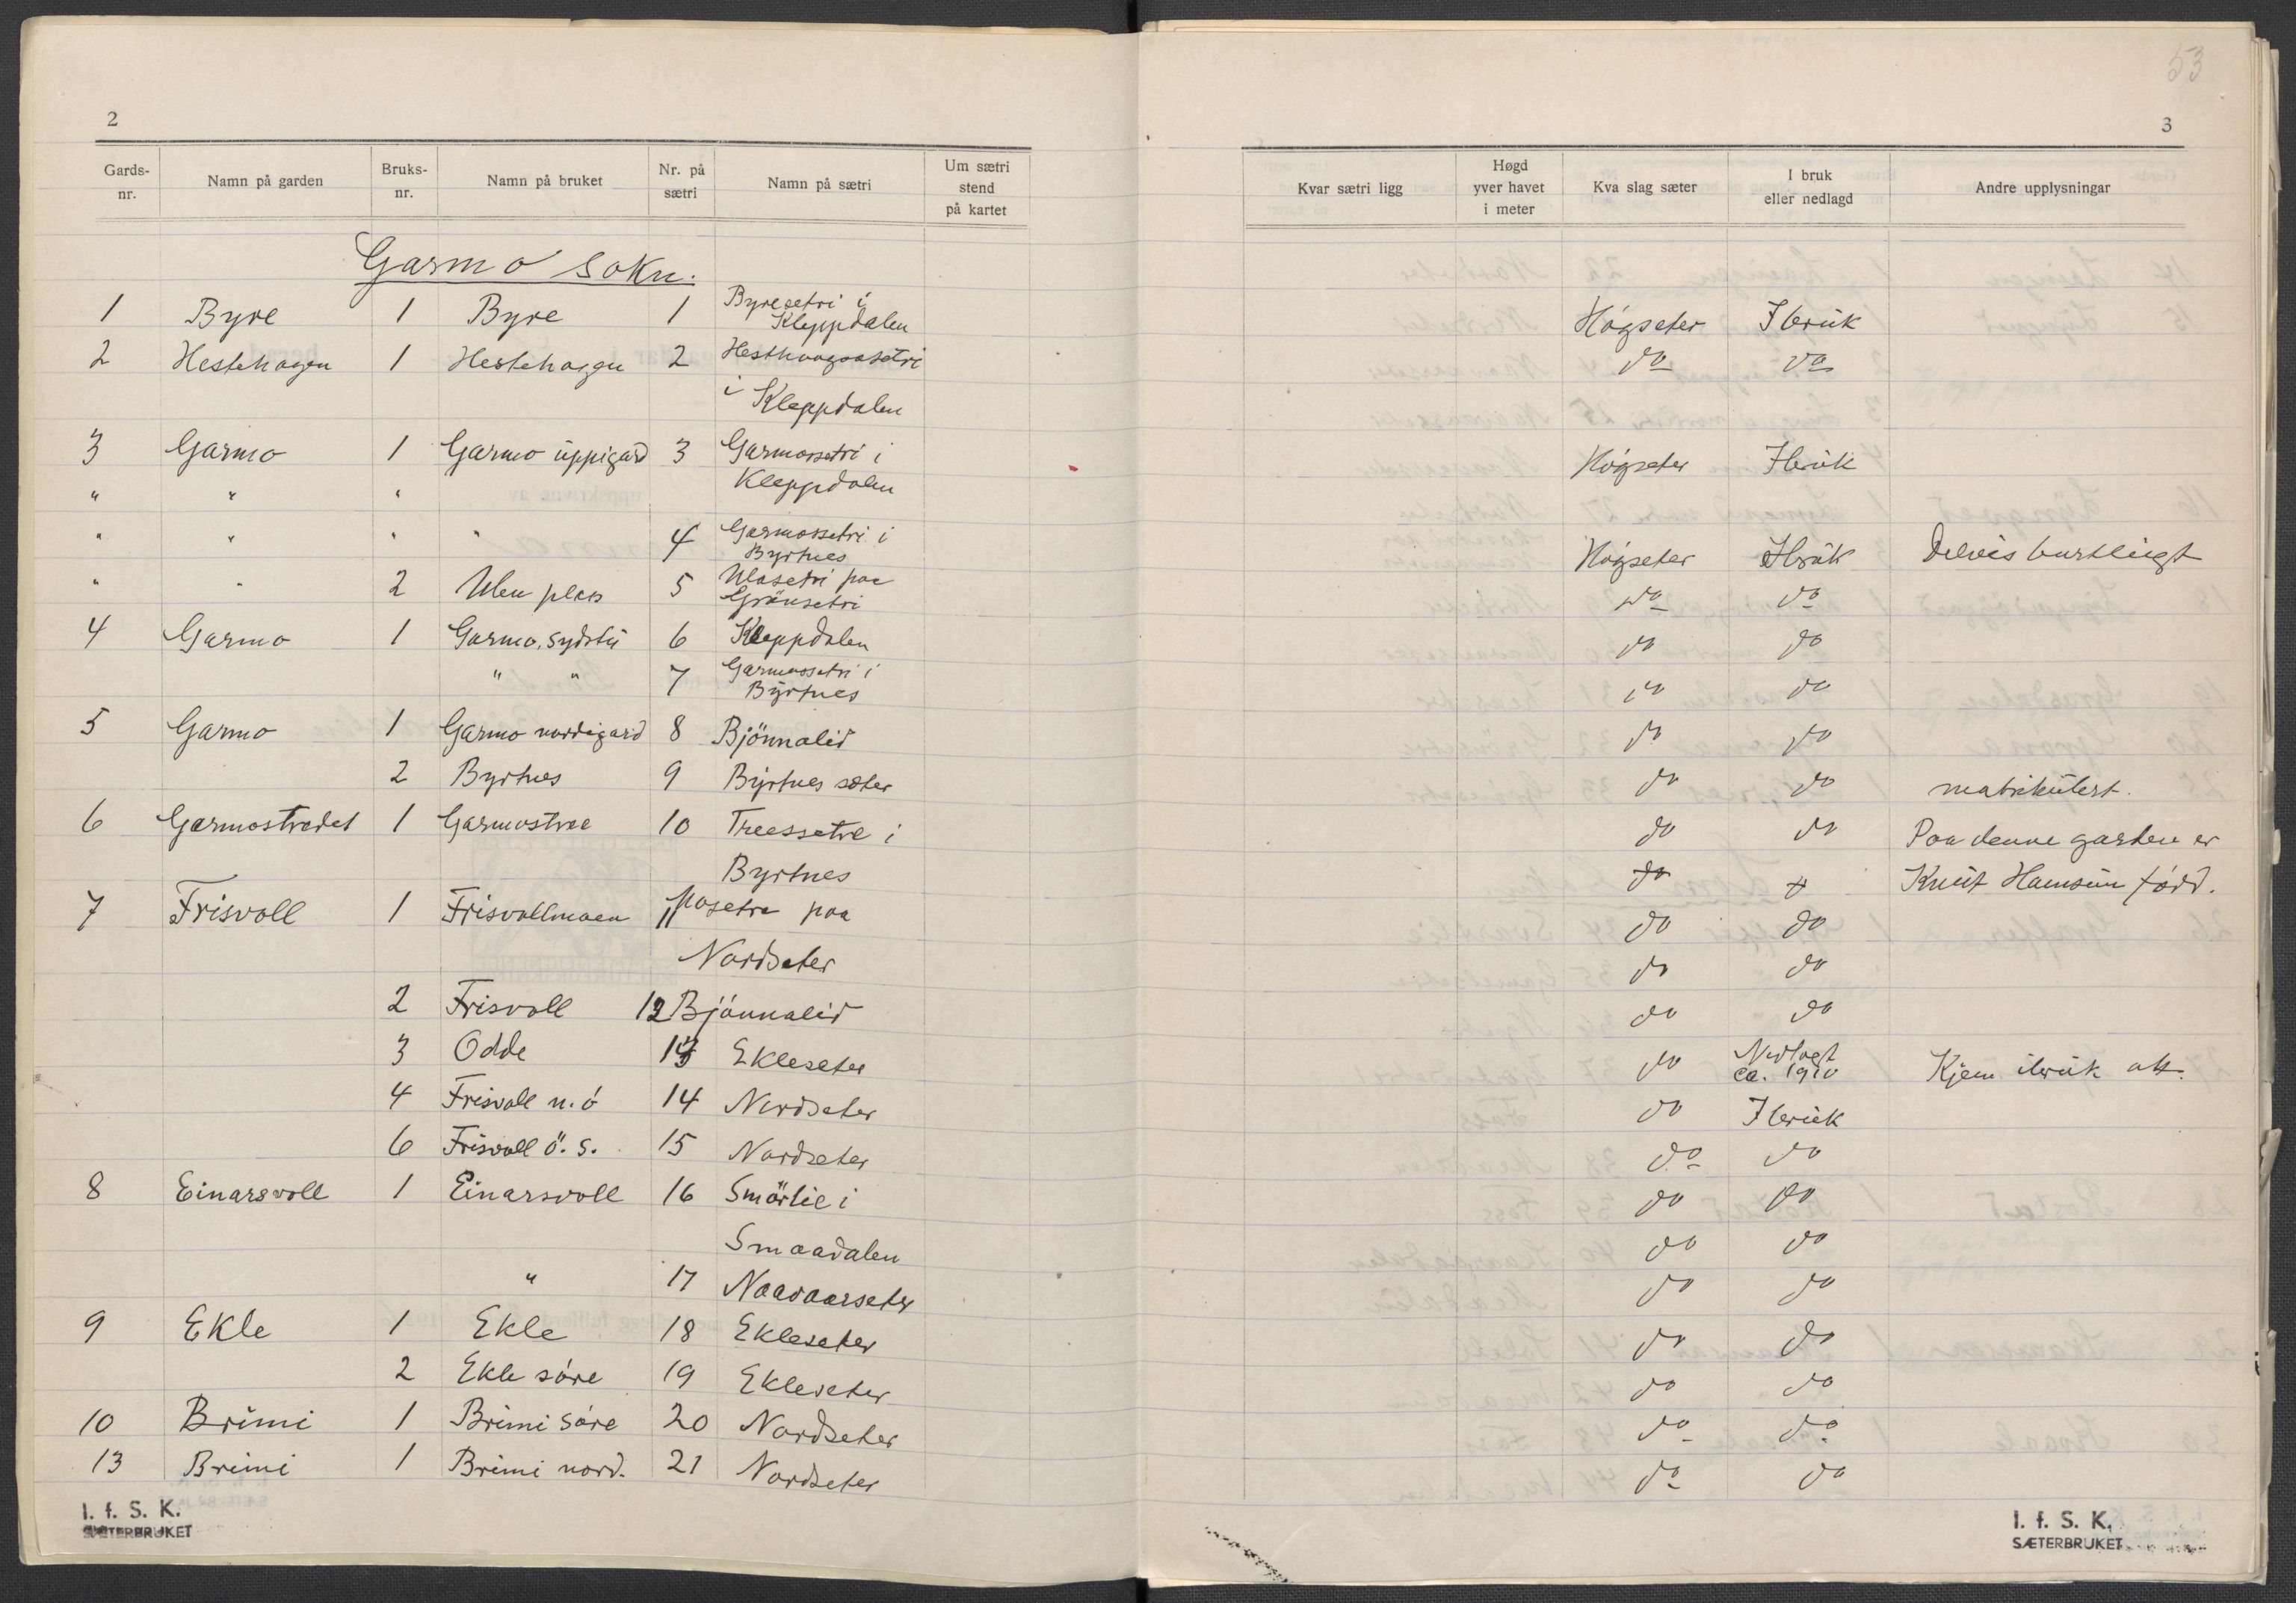 2
Gards-nr. Namn på garden Bruks-nr. Namn på bruket Nr. på sætri Namn på sætri Um sætri stend på kartet
Garmo sokn.
1 Byre 1 Byre 1 Byresetri i
Kleppdalen
2 Hestehagen 1 Hestehagen 2
i Kleppdalen
3 Garmo 1 Garmo uppigard 3 Garmossetri i
" " " Kleppdalen
" " " " 4 Garmossetri i
Byrtnes
" " 2 Ulen plass 5 Ulasetri paa
Grönsetri
4 Garmo 1 Garmo, sydstu 6 Kleppdalen
" " 7 Garmossetri i
Byrtnes
5 Garmo 1 Garmo nordigard 8 Bjönnalid
2 Byrtnes 9 Byrtnes sæter
6 Garmostrædet 1 Garmostree 10 Treessetre i
Byrtnes
7 Frisvoll 1 Frisvollmoen 11 Mosetre paa
Nordseter
2 Frisvoll 12 Bjönnalid
3 Odde 13 Ekleseter
4 Frisvoll n. ö 14 Nordseter
6 Frisvoll ö. s. 15 Nordseter
8 Einarsvoll 1 Einarsvoll 16 Smörlie i
Smaadalen
" 17 Naavaarseter
9 Ekle 1 Ekle 18 Ekleseter
2 Ekle söre 19 Ekleseter
10 Brimi 1 Brimi Söre 20 Nordseter
13 Brimi 1 Brimi nord. 21 Nordseter
I. f. S. K.
SÆTERBRUKET
53
3
Kvar sætri ligg Høgd yver havet i meter Kva slag sæter I bruk eller nedlagd Andre upplysningar
Högseter Ibruk
do do
Högseter Ibruk
Högseter Ibruk Delvis burtleigt
do do
do do
do do
do do
do do matrikulert.
do do Paa denne garden er
do Knut Hamsun född.
do do
do do
do do
do Nedlagt
ca. 1910 Kjem ibruk att.
do Ibruk
do do
do do
do do
do do
do do
do do
do do
do do
I. f. S. K.
SÆTERBRUKET